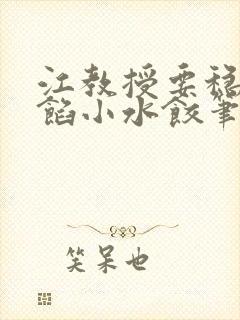 江教授要稳
馅小水饺笔
笑呆也